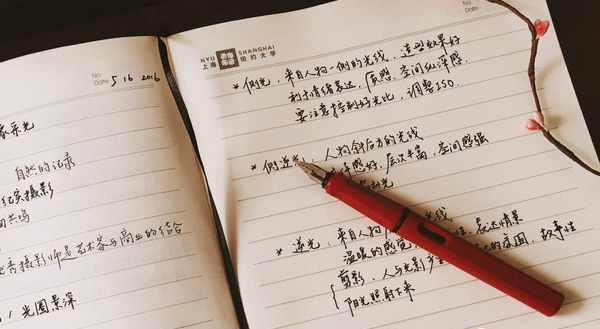 No.
Date 5 16 2016
自然的记录
纪实摄影
1 光圈景深
NYU SHANGHAI
上海 纽约大学
No.
Date
* 侧光，来自人物一侧的光线，造型效果好
利于情绪表达，质感，空间纵深感.
要注意控制好光比，调整ISO.
* 侧逆光 人物斜后方的光线
感好，层次丰富，空间感强
* 逆光，来自人物 光线
温暖的感觉 表达情景
剪影，人与光影 的氛围，故事性
阳光照射下来